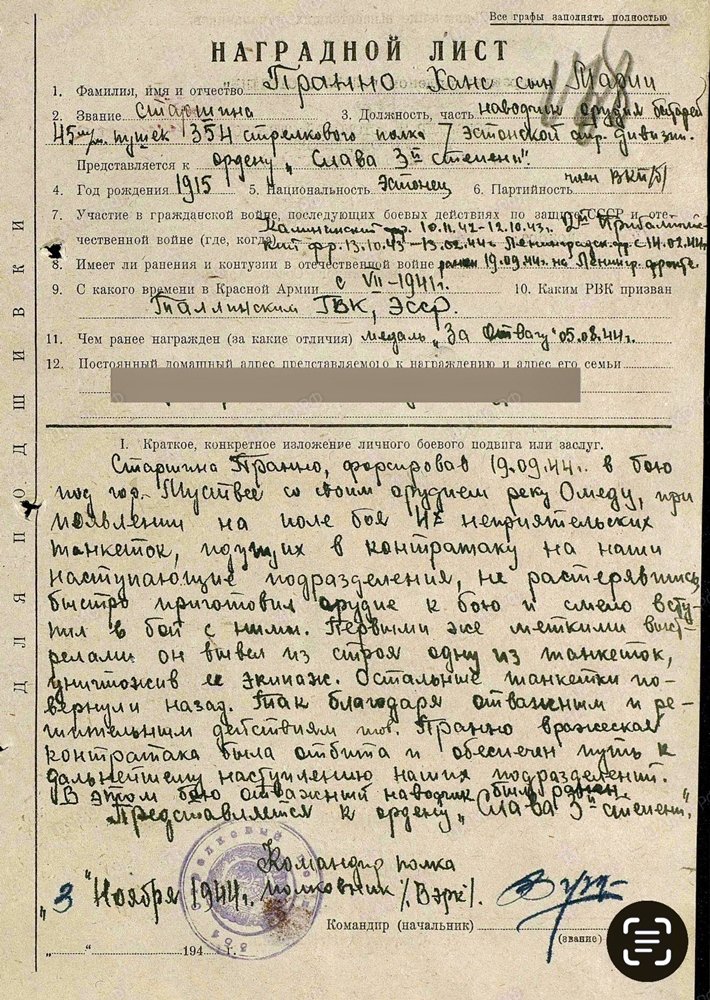 Все графы заполнять полностью
НАГРАДНОЙ ЛИСТ
1. Фамилия, имя и отчество Пранно Ханс сын Марии
2. Звание старшина 3. Должность, часть наводчик орудия батареи
45 м/м. пушек 354 стрелкового полка 7 Эстонской стр. дивизии.
Представляется к ордену „Слава 3й степени".
4. Год рождения 1915 5. Национальность Эстонец 6. Партийность член ВКП/б/
7. Участие в гражданской войне, последующих боевых действиях по защите СССР и оте-
чественной войне (где, когда) Калининский фр. 10.11.42-12.10.43г. 2й Прибалтий-
ский фр. 13.10.43-13.02.44г. Ленинградск. фр. с 14.02.44г.
8. Имеет ли ранения и контузии в отечественной войне ранен 19.09.44г. на Ленингр. фронте.
9. С какого времени в Красной Армии с VII-1941г. 10. Каким РВК призван
Таллинским ГВК, ЭССР.
11. Чем ранее награжден (за какие отличия) медаль „За Отвагу" 05.08.44г.
12. Постоянный домашный адрес представляемого к награждению и адрес его семьи
I. Краткое, конкретное изложение личного боевого подвига или заслуг.
Старшина Пранно, форсировав 19.09.44г. в бою
под гор. Муствее со своим орудием реку Омеду, при
появлении на поле боя 4х неприятельских
танкеток, идущих в контратаку на наши
наступающие подразделения, не растерявшись
быстро приготовил орудие к бою и смело всту-
пил в бой с ними. Первыми же меткими выст-
релами он вывел из строя одну из танкеток,
уничтожив ее экипаж. Остальные танкетки по-
вернули назад. Так благодаря отважным и ре-
шительным действиям тов. Пранно вражеская
контратака была отбита и обеспечен путь к
дальнейшему наступлению наших подразделений.
В этом бою отважный наводчик был ранен.
Представляется к ордену „Слава 3й степени".
Командир полка
полковник /Вэрк/.
„3" Ноября 1944г.
Командир (начальник)
(звание)
„ " 194 г.
ДЛЯ ПОДШИВКИ